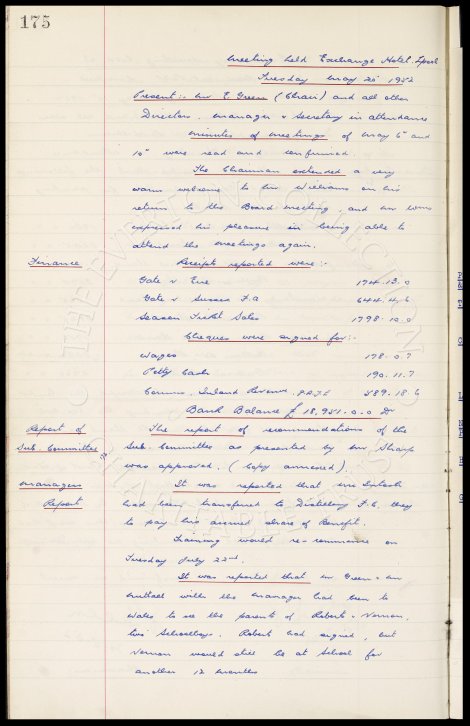 175
Meeting held Exchange Hotel. Lpool
Tuesday May 20 1952
Present:- Mr E. Green (Chair) and all other
Directors. Manager & Secretary in attendance
Minutes of meetings of May 6th and
10th were read and confirmed.
The Chairman extended a very
warm welcome to Mr Williams on his
return to the Board meeting, and Mr Wms
expressed his pleasure in being able to
attend the meetings again.
Finance Receipts reported were:-
Gate v Eire 1744.13.0
Gate v Sussex F.A 644.4.6
Season Ticket Sales 1798.10.0
Cheques were signed for:-
Wages 178.0.7
Petty Cash 190.11.7
Comms. Inland Revenue. P.A.Y.E 589.18.6
Bank Balance £18,951.0.0 Dr
Report of The report of recommendations of the
Sub. Committee Sub. Committee as presented by Mr Sharp
was approved. (Copy annexed).
Managers It was reported that
Report had been transferred to Distillery F.C. they
to pay his accrued share of Benefit.
Training would re-commence on
Tuesday July 22nd.
It was reported that Mr Green & Mr
with the Manager had been to
Wales to see the parents of Roberts & Vernon,
two Schoolboys. Roberts had signed, but
Vernon would still be at School for
another 12 months
THE EVERTON COLLECTION